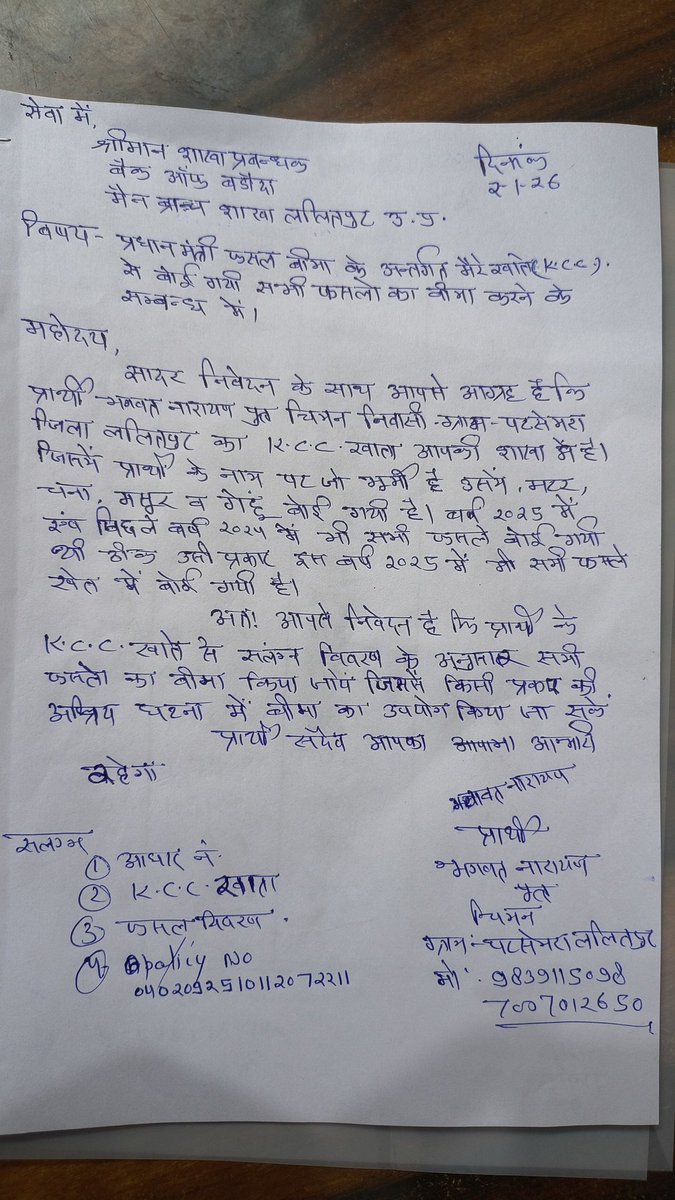 सेवा में,
श्रीमान शाखा प्रबन्धक
बैक ऑफ बडौदा
मैन ब्रान्च शाखा ललितपुर उ.प्र.
दिनांक
2-1-26
विषय - प्रधान मंत्री फसल बीमा के अन्तर्गत मेरे खाते (K.C.C).
से बोई गयी सभी फसलो का बीमा करने के
सम्बन्ध में।
महोदय,
सादर निवेदन के साथ आपसे आग्रह है कि
प्रार्थी भगवत नारायण पुत्र चिमन निवासी ग्राम - पटसेमरा
जिला ललितपुर का K.C.C. खाता आपकी शाखा में है।
जिसमें प्रार्थी के नाम पर जो भूमी है उसमें, मटर,
चना, मसुर व गेहूं बोई गयी है। वर्ष 2025 में
एवं पिछले वर्ष 2024 में भी सभी फसले बोई गयी
थी ठीक उसी प्रकार इस वर्ष 2025 में भी सभी फसले
खेत में बोई गयी है।
अतः आपसे निवेदन है कि प्रार्थी के
K.C.C. खाते से संलग्न विवरण के अनुसार सभी
फसलो का बीमा किया जाये जिससे किसी प्रकार की
अप्रिय घटना में बीमा का उपयोग किया जा सके
प्रार्थी सदैव आपका आभारी
रहेगा
भगवत नारायण
प्रार्थी
भगवत नारायण
पुत्र
चिमन
ग्राम - पटसेमरा ललितपुर
मो. 9839115098
7007012650
सलग्न
① आधार नं.
② K.C.C. खाता
③ फसल विवरण.
④ policy No
040209251011207 2211